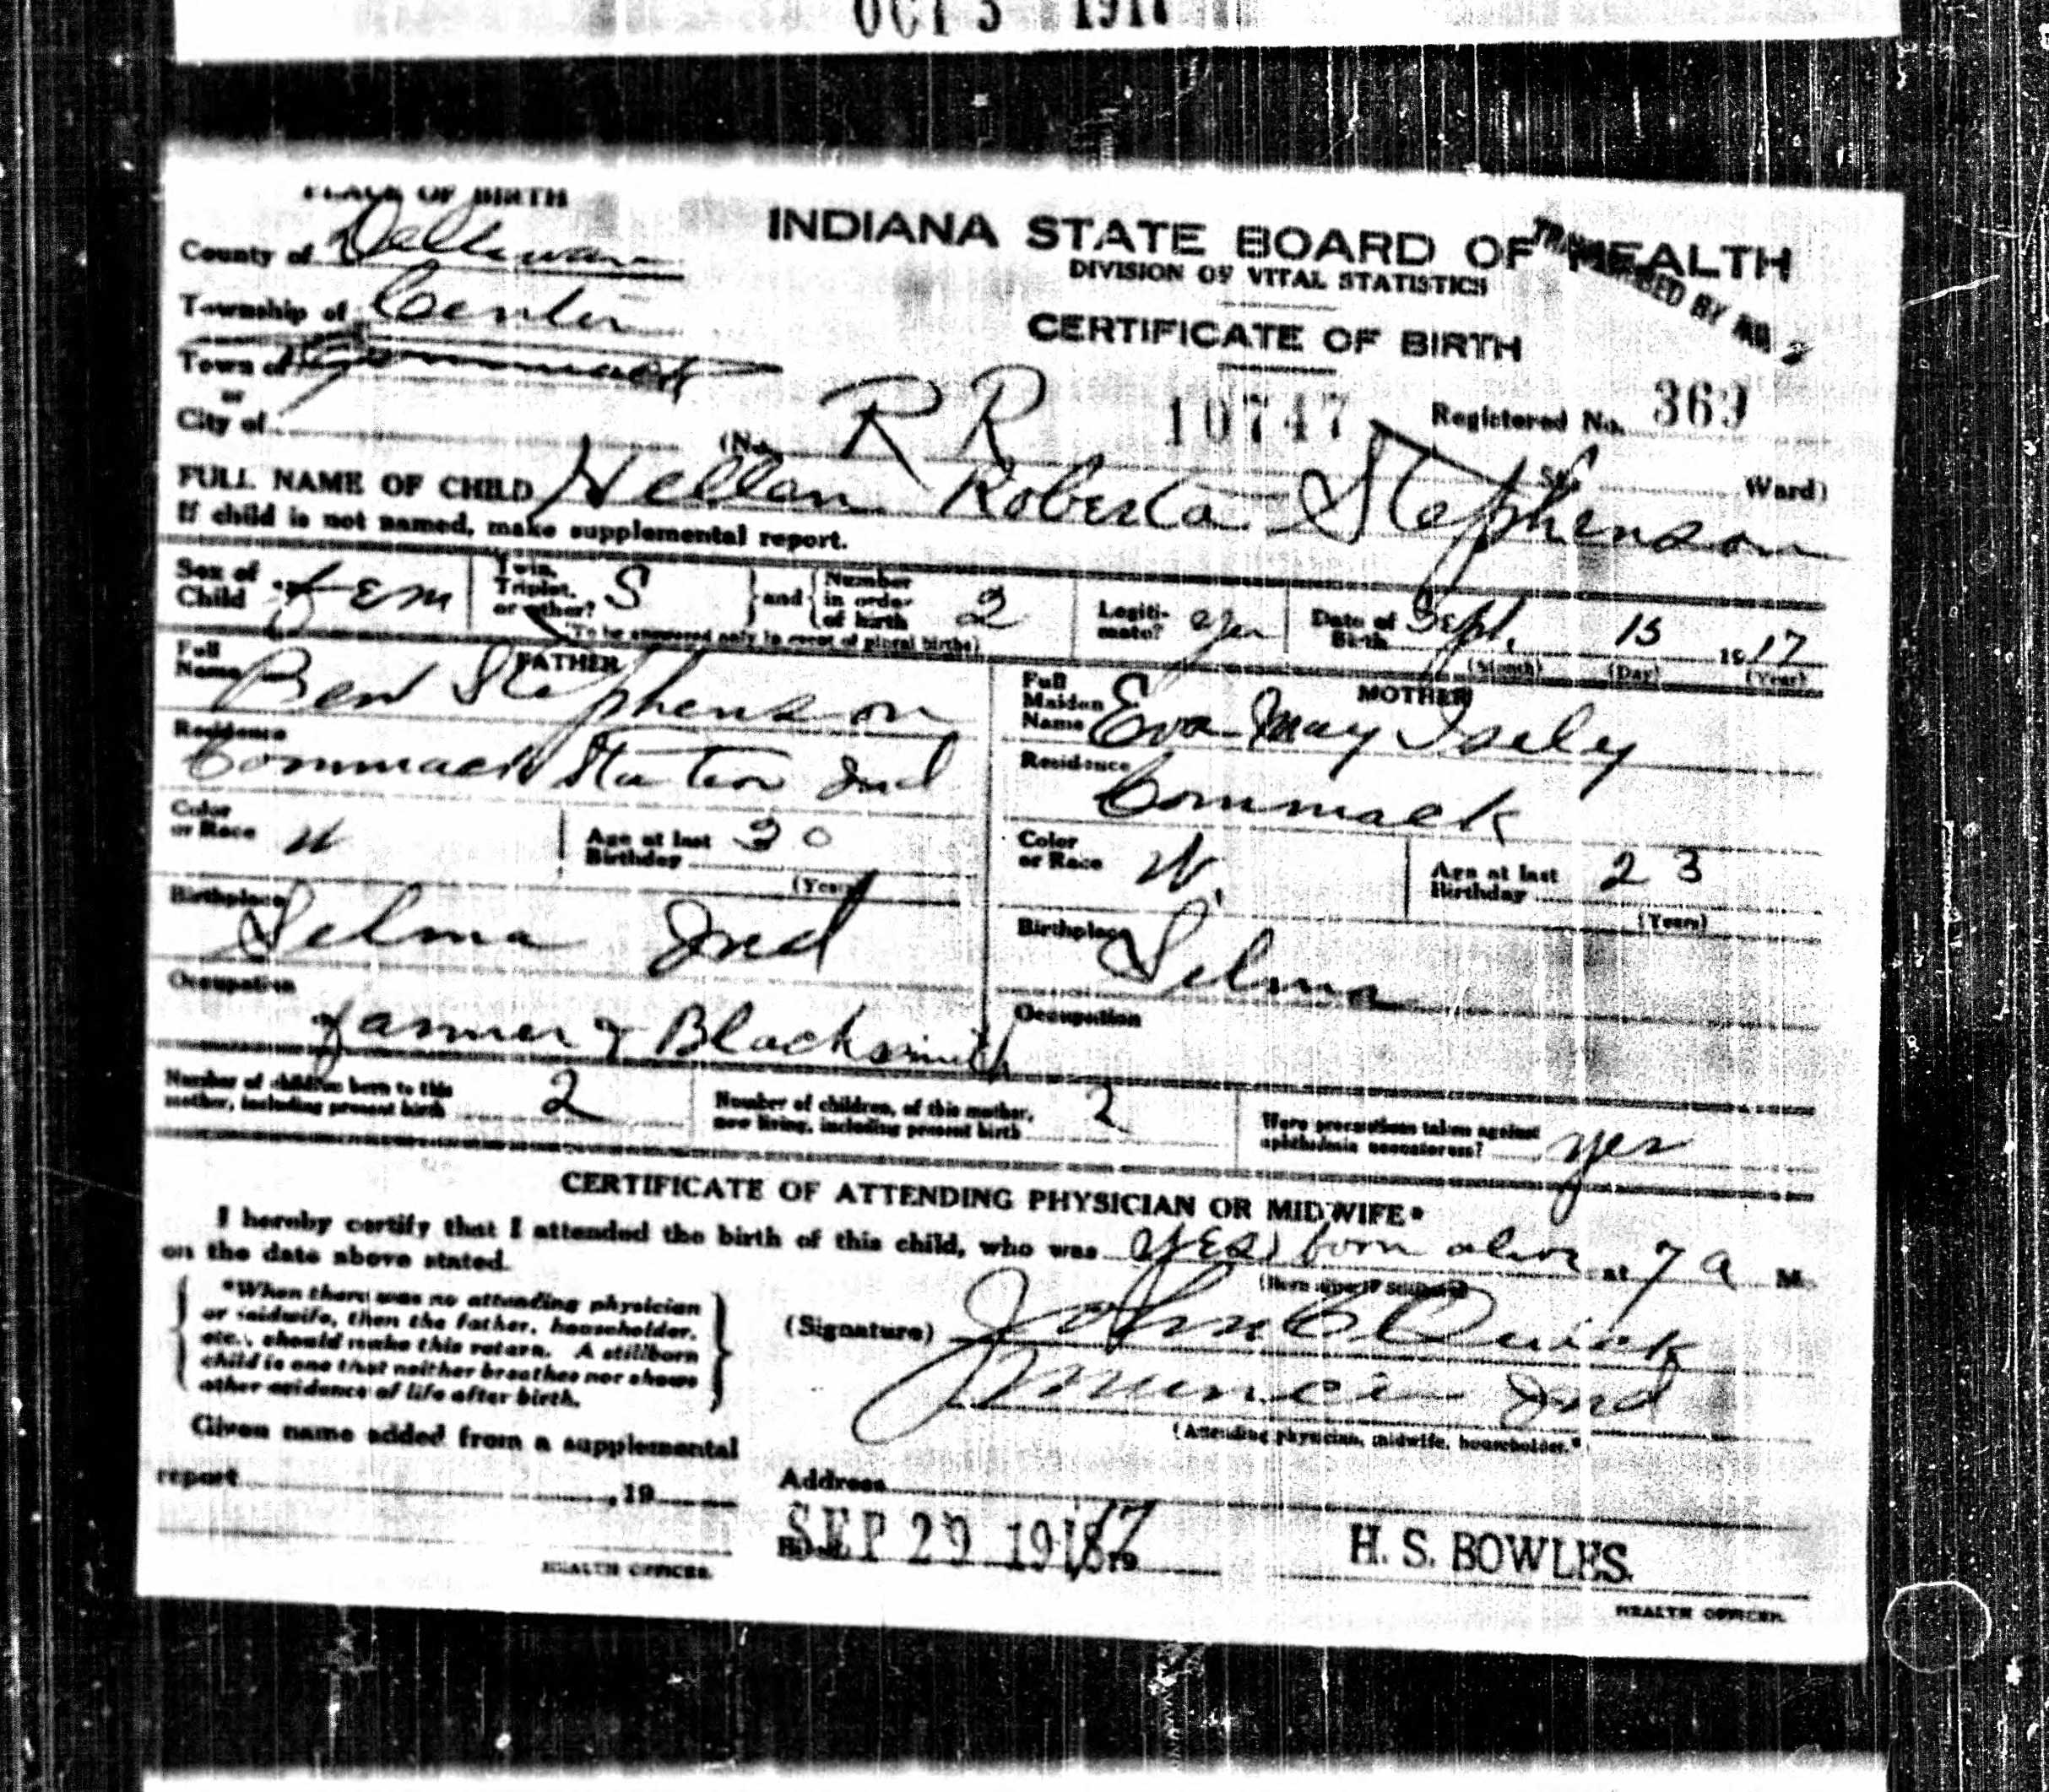 OCT 3 1917
PLACE OF BIRTH
INDIANA STATE BOARD OF HEALTH
DIVISION OF VITAL STATISTICS
CERTIFICATE OF BIRTH
BY NO 2
County of Dellewar
Township of Center
Town of Commack
or
City of
(No. R R 10747 Registered No. 369
St. Ward)
FULL NAME OF CHILD Hellen Roberta Stephenson
If child is not named, make supplemental report.
Sex of Child fem Twin, Triplet, or other? S and Number in order of birth 2 Legitimate? yes Date of Birth Sept. 15 1917
(To be answered only in event of plural births) (Month) (Day) (Year)
FATHER
Full Name Ben Stephenson
Residence Commack Station Ind
Color or Race W Age at last Birthday 30
(Years)
Birthplace Selma Ind
Occupation farmer & Blacksmith
MOTHER
Full Maiden Name Eva May Isely
Residence Commack
Color or Race W. Age at last Birthday 23
(Years)
Birthplace Selma
Occupation
Number of children born to this mother, including present birth 2 Number of children, of this mother, now living, including present birth 2 Were precautions taken against ophthalmia neonatorum? yes
CERTIFICATE OF ATTENDING PHYSICIAN OR MIDWIFE*
I hereby certify that I attended the birth of this child, who was yes born alive at 7 a M.
on the date above stated. (Born alive or stillborn)
*When there was no attending physician
or midwife, then the father, householder,
etc., should make this return. A stillborn
child is one that neither breathes nor shows
other evidence of life after birth.
(Signature) John C Quick
Muncie Ind
(Attending physician, midwife, householder.*)
Given name added from a supplemental
report , 19
Address
SEP 29 1917
H. S. BOWLES.
HEALTH OFFICER.
HEALTH OFFICER.